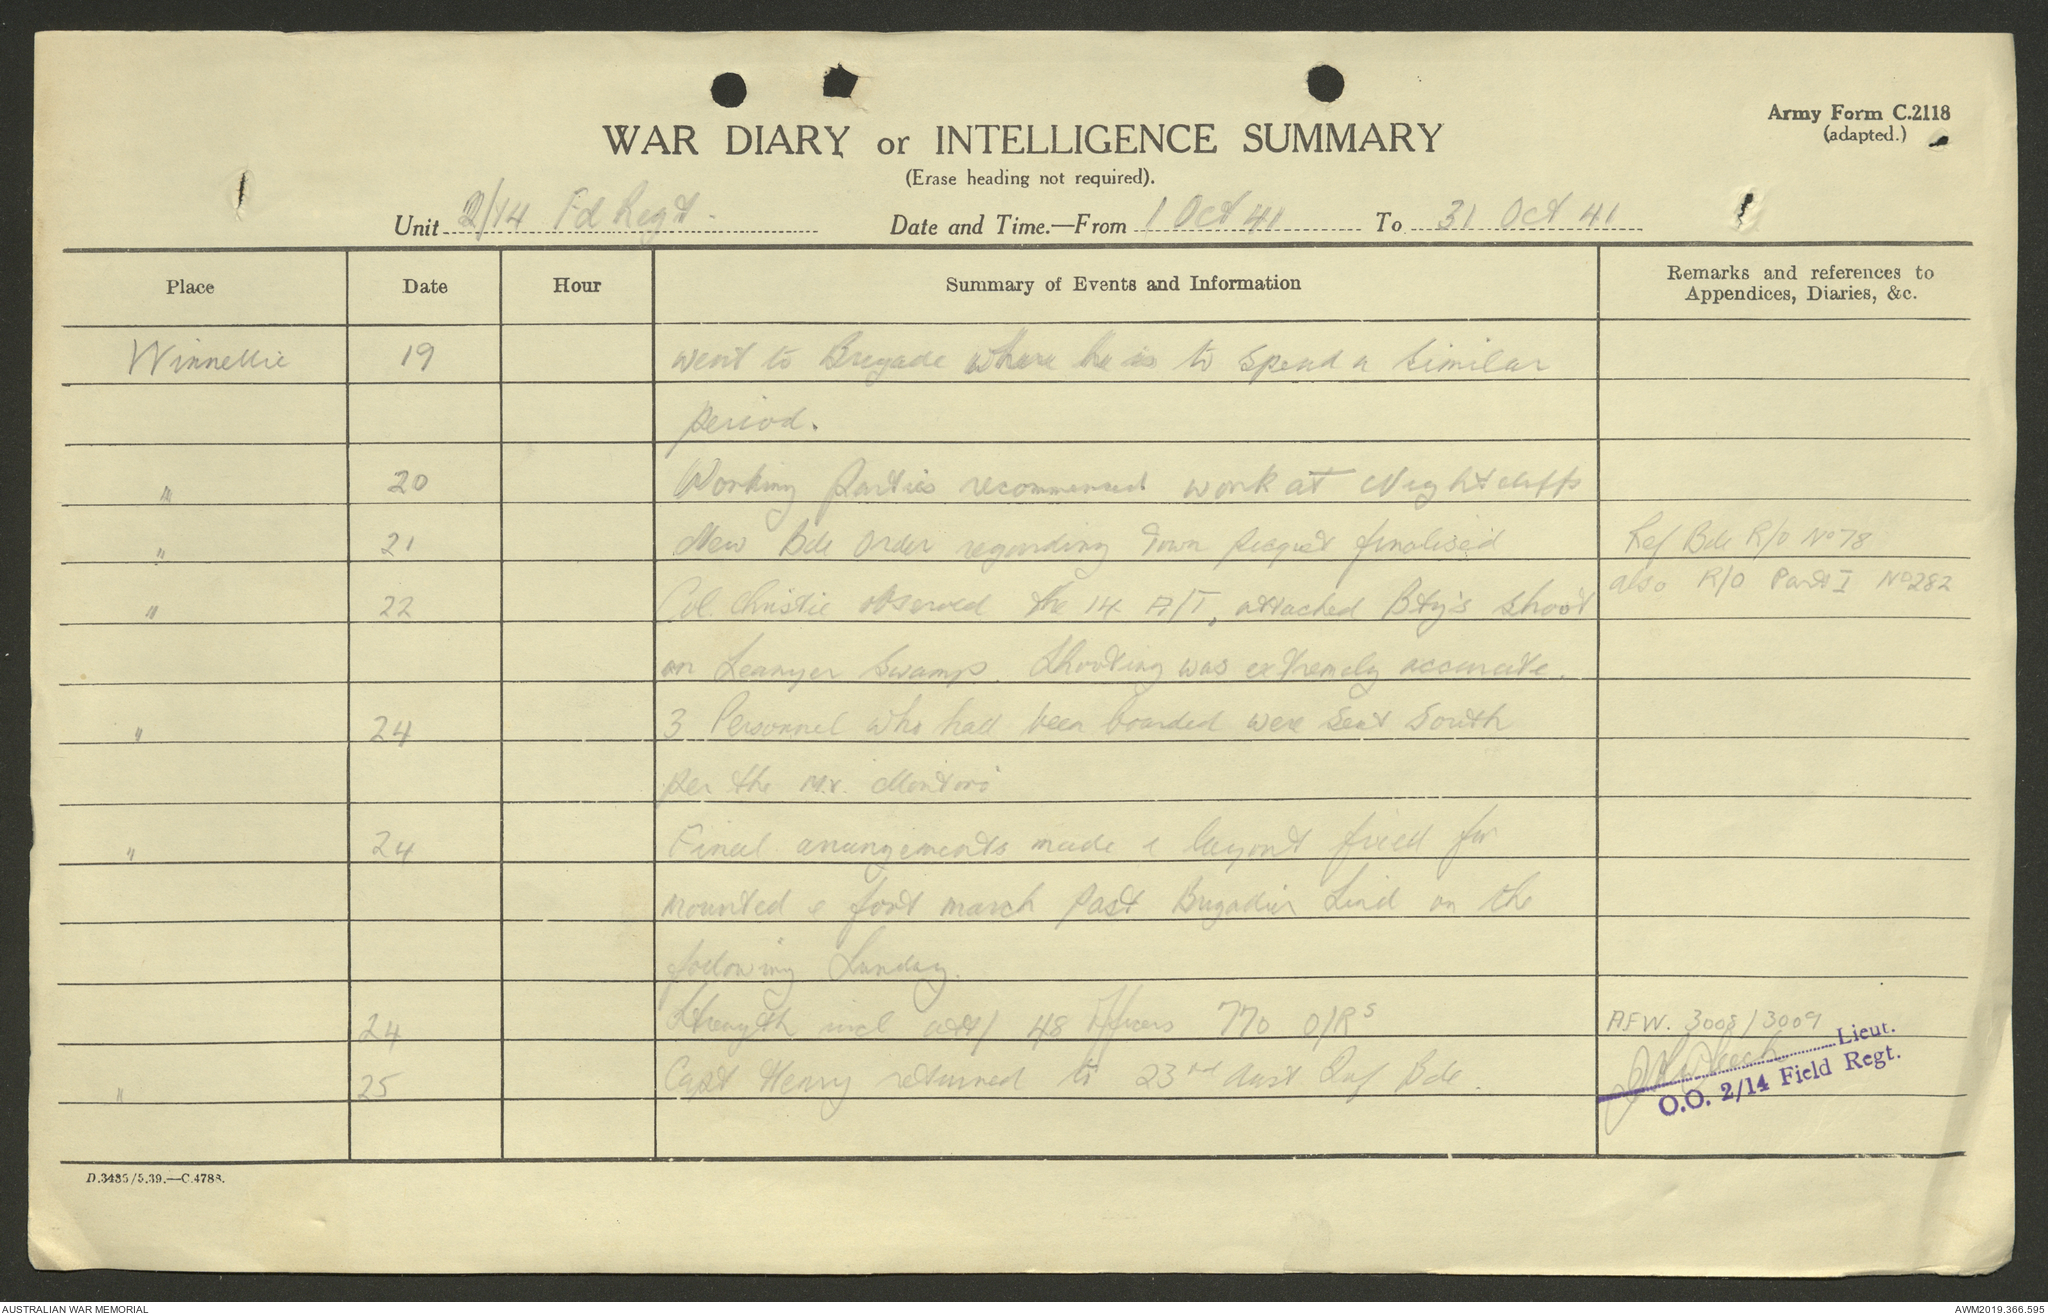 Army Form C.2118
(adapted.)
WAR DIARY or INTELLIGENCE SUMMARY
(Erase heading not required).
Unit 2/14 Fd Regt. Date and Time.—From 1 Oct 41 To 31 Oct 41
Place Date Hour Summary of Events and Information Remarks and references to Appendices, Diaries, &c.
Winnellie 19 went to Brigade where he is to spend a similar
period.
" 20 Working Parties recommenced work at Nightcliffs
" 21 New Bde Order regarding Town picquet finalised Ref Bde R/O No 78
also R/O Part I No 282
" 22 Col. Christie observed the 14 A/T, attached Bty's shoot
on Leanyer Swamp. Shooting was extremely accurate.
" 24 3 Personnel who had been boarded were sent South
per the M.V. Montoro
" 24 Final arrangements made & layout fixed for
mounted & foot march past Brigadier Lind on the
following Sunday.
24 Strength incl att/ 48 Officers 770 O/Rs AFW. 3008/3009
" 25 Capt Henry returned to 23rd Aust Inf Bde.
Lieut.
O.O. 2/14 Field Regt.
D.3435/5.39.—C.4788.
AUSTRALIAN WAR MEMORIAL
AWM2019.366.595